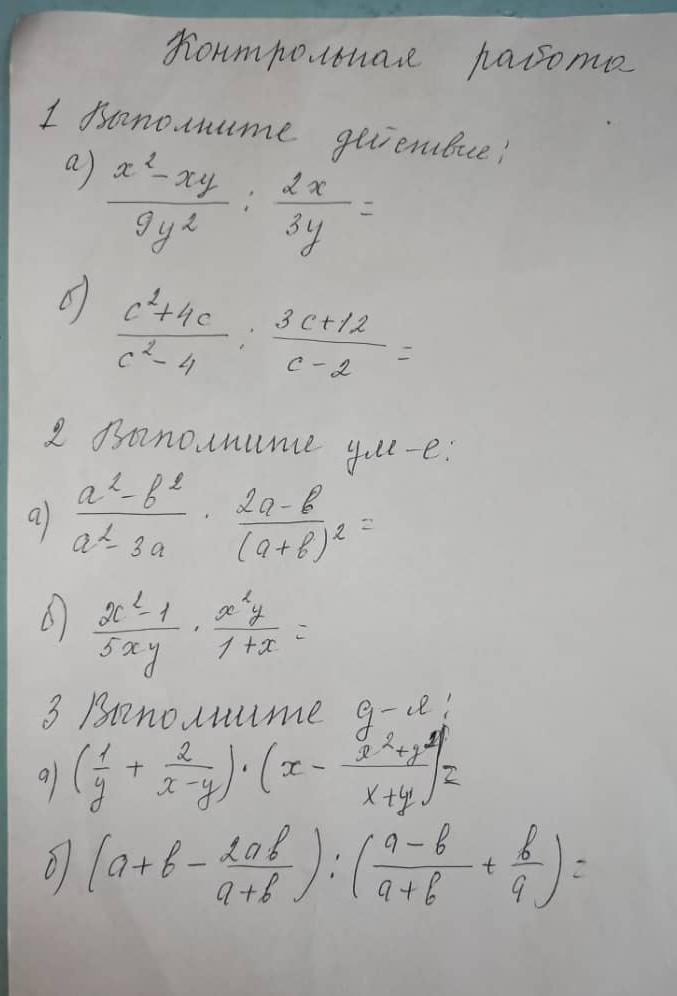 Контрольная работа
1 Выполните действие:
а) (x² - xy)/(9y²) : (2x)/(3y) =
б) (c² + 4c)/(c² - 4) : (3c + 12)/(c - 2) =
2 Выполните ум-е:
а) (a² - b²)/(a² - 3a) · (2a - b)/(a + b)² =
б) (x² - 1)/(5xy) · (x²y)/(1 + x) =
3 Выполните д-я:
а) (1/y + 2/(x - y)) · (x - (x² + y²)/(x + y)) =
б) (a + b - (2ab)/(a + b)) : ((a - b)/(a + b) + b/a) =